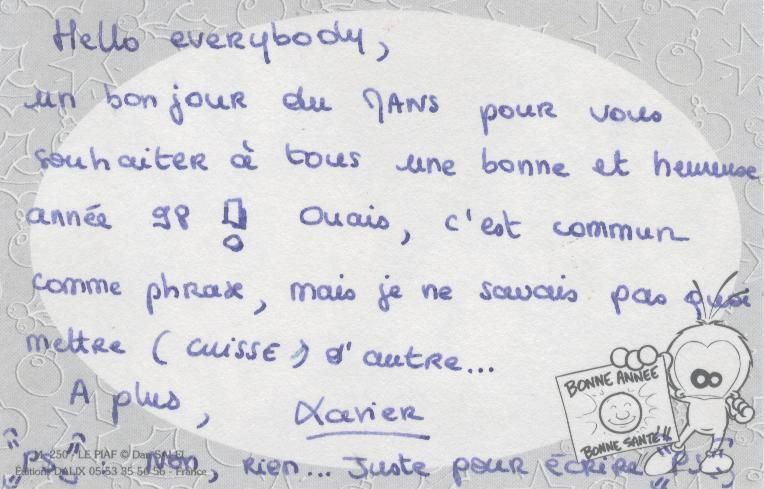 Hello everybody,
un bonjour du MANS pour vous
souhaiter à tous une bonne et heureuse
année 98 ! Ouais, c'est commun
comme phrase, mais je ne savais pas quoi
mettre (CUISSE) d'autre...
A plus, Xavier
BONNE ANNÉE
BONNE SANTÉ !!
"PS" : Non, rien... Juste pour écrire "P.S."
M-250 / LE PIAF ©
Editions DALIX 05 53 35 50 56 - France